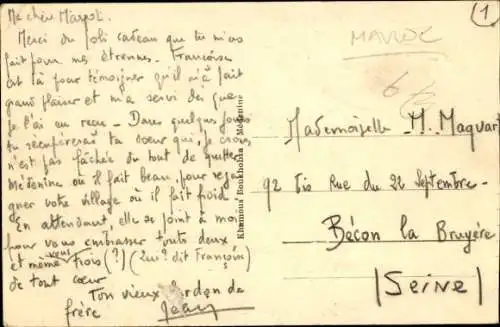 Ma chère Margot.
Merci du joli cadeau que tu m'as
fait pour mes étrennes. Françoise
est là pour témoigner qu'il m'a fait
grand plaisir et m'a servi dès que
je l'ai eu reçu - Dans quelques jours
tu récupéreras ta sœur qui, je crois
n'est pas fâchée du tout de quitter
Médenine où il fait beau, pour rega-
gner votre village où il fait froid.
En attendant, elle se joint à moi
pour vous embrasser toutes deux
et même vous trois (?) (2m? dit François)
de tout cœur
Ton vieux de
frère Jean
Khamous Boukhobza Médenine
1
MAROC
Mademoiselle M. Maquart
92 bis Rue du 22 Septembre -
Bécon la Bruyère
(Seine)